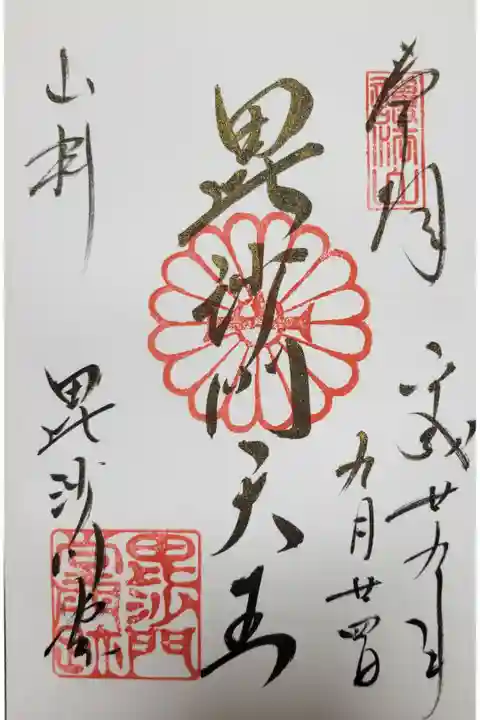 奉拝
護法山
平成廿九年
九月廿四日
毘沙門天王
山科
毘沙門堂
毘沙門
堂門跡